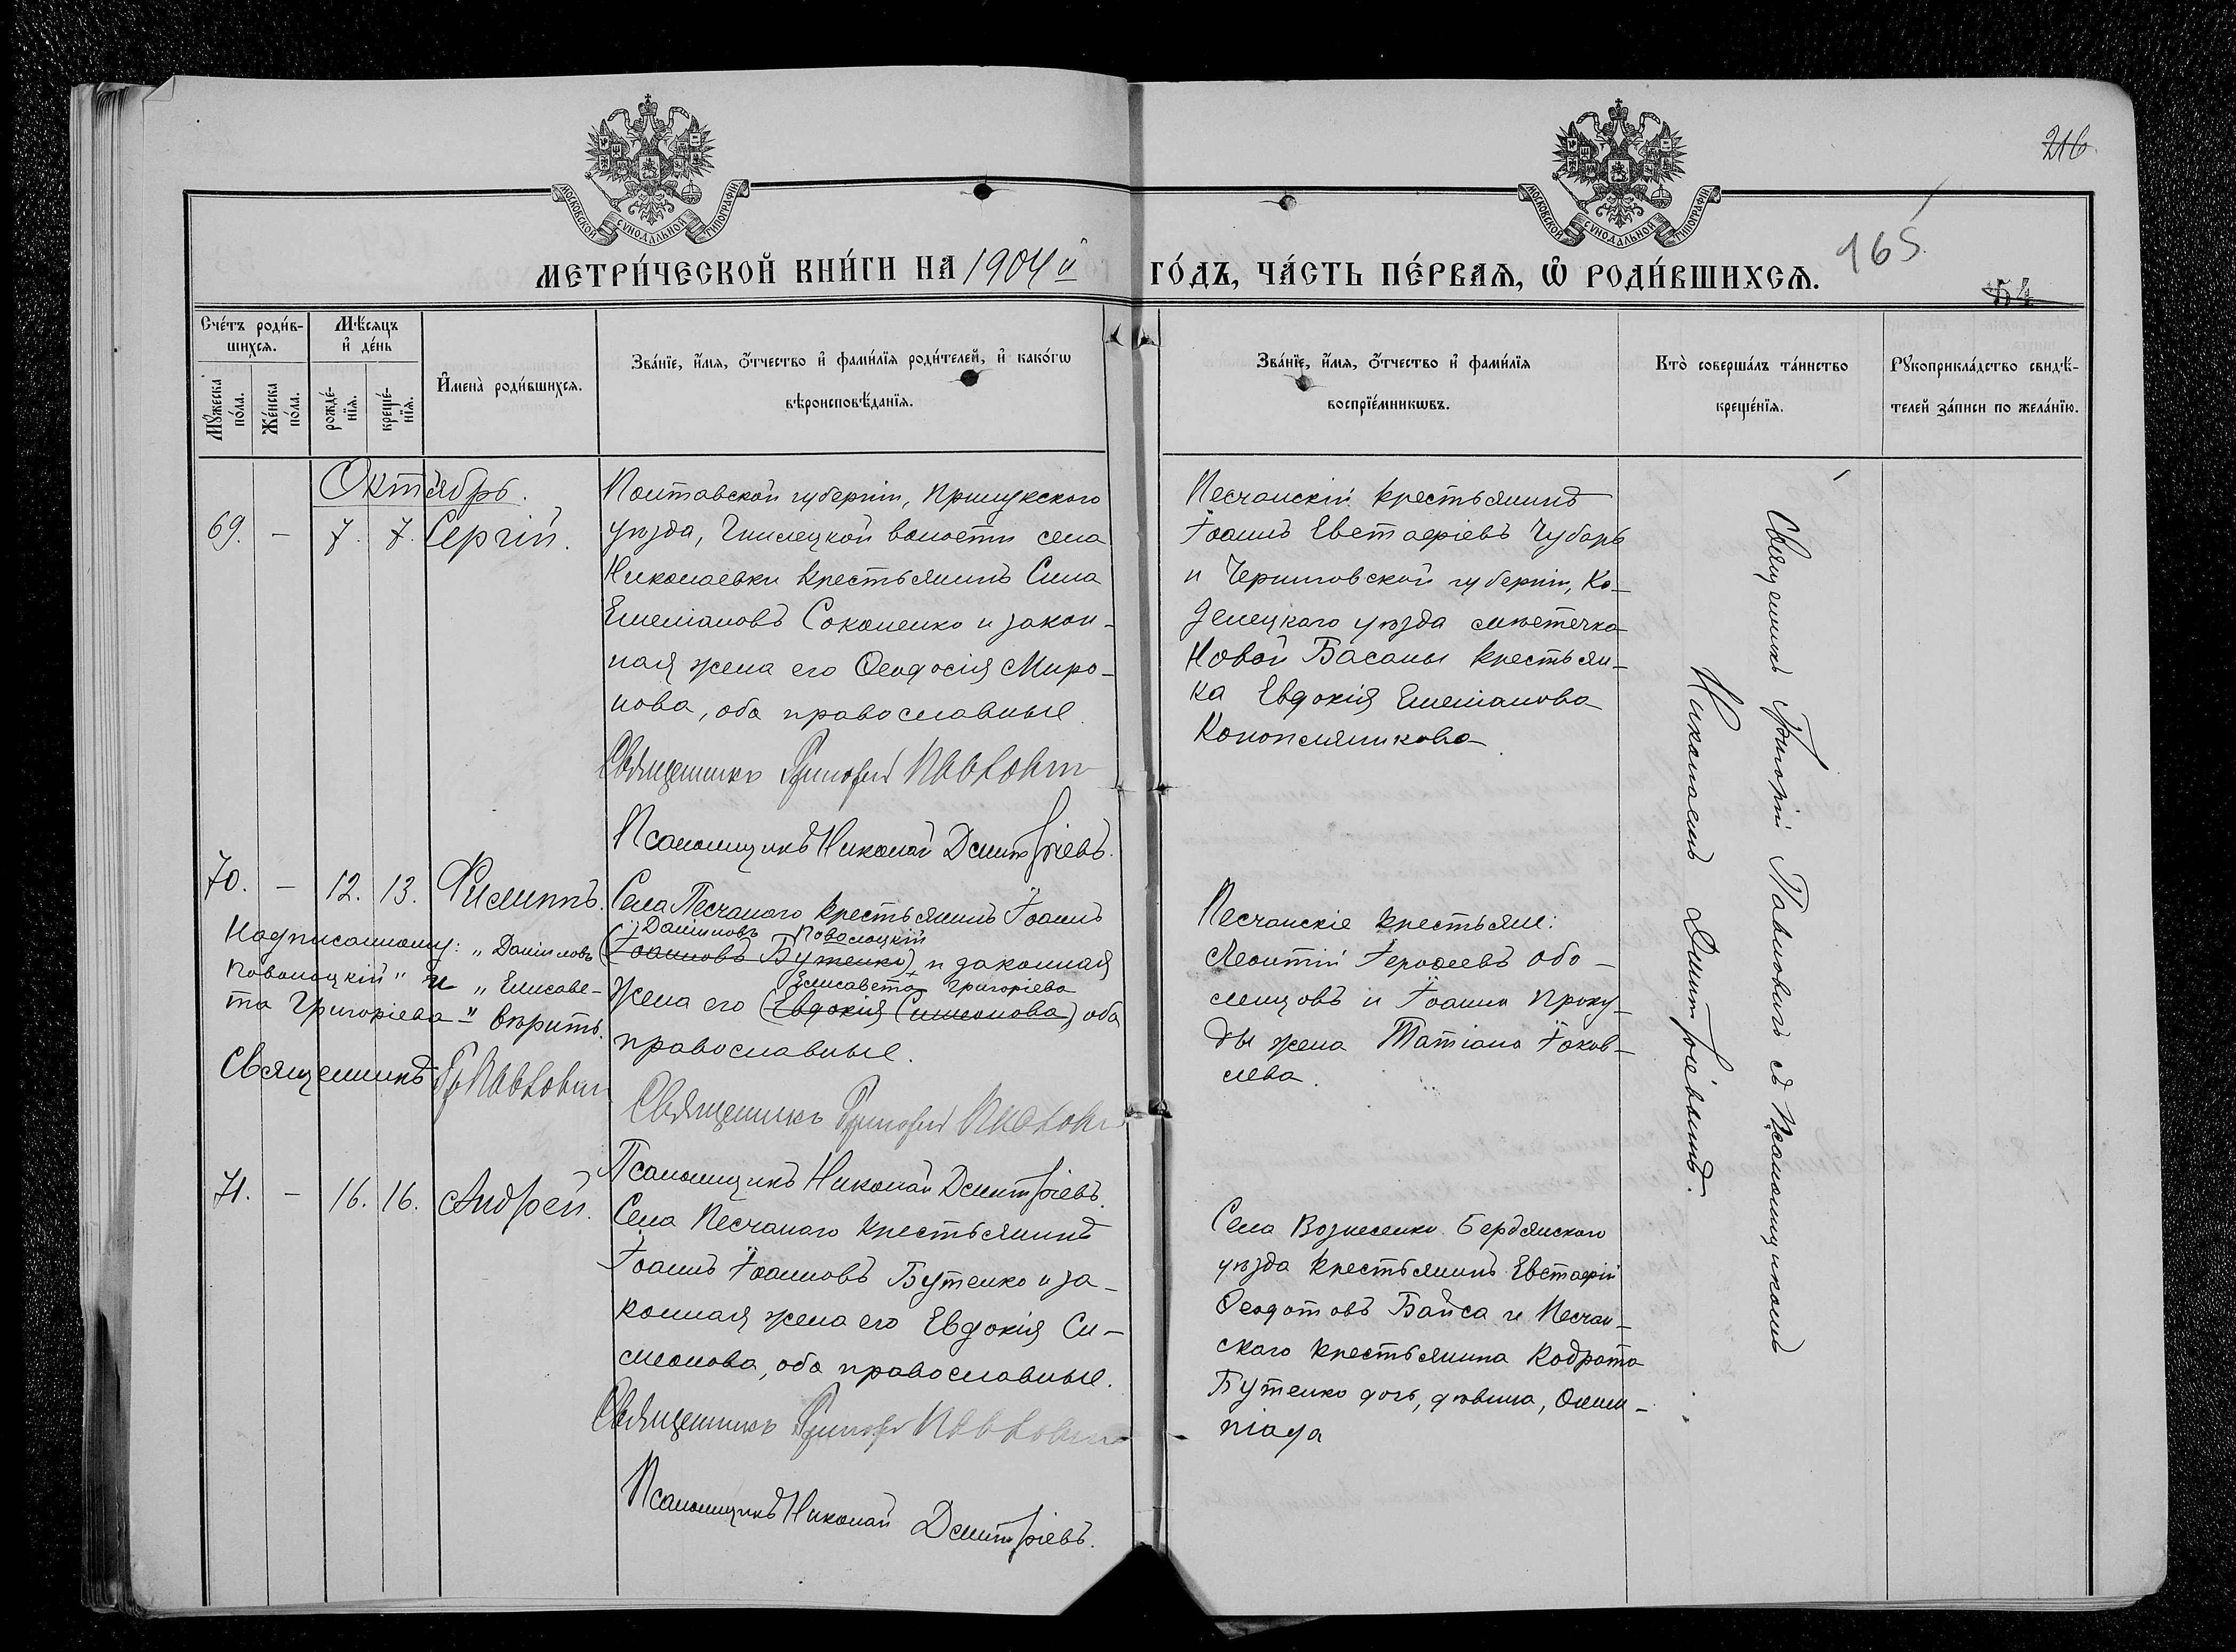 МОСКОВСКОЙ СѴНОДАЛЬНОЙ ТИПОГРАФІИ
МОСКОВСКОЙ СѴНОДАЛЬНОЙ ТИПОГРАФІИ
216
МЕТРИ́ЧЕСКОЙ КНИ́ГИ НА 1904й ГО́ДЪ, ЧА́СТЬ ПЕ́РВАѦ, Ѡ РОДИ́ВШИХСѦ.
165
54
Сче́тъ роди́в-
шихсѧ.
Мꙋжеска по́ла.
Же́нска по́ла.
Мѣ́сѧцъ
и҆ де́нь
рожде́-
нїѧ.
креще́-
нїѧ.
И҆мена̀ роди́вшихсѧ.
Зва́нїе, и҆́мѧ, ѻ҆́тчество и҆ фами́лїѧ роди́телей, и҆ како́гѡ
вѣроисповѣ́данїѧ.
Зва́нїе, и҆́мѧ, ѻ҆́тчество и҆ фами́лїѧ
воспрїе́мникѡвъ.
Кто̀ соверша́лъ та́инство
креще́нїѧ.
Рꙋкоприкла́дство свидѣ́-
телей за́писи по жела́нїю.
Октябрь.
69. – 7. 7. Сергій.
Полтавской губерніи, Прилукского
уѣзда, Гнилецкой волости села
Николаевки крестьянинъ Сила
Емеліановъ Соколенко и закон-
ная жена его Ѳеодосія Миро-
нова, оба православные.
Священникъ Григорій Павлович
Псаломщикъ Николай Дмитріевъ.
Песчанскій крестьянинъ
Іоаннъ Евстафіевъ Чубарь
и Черниговской губерніи, Ко-
зелецкого уѣзда мѣстечка
Новой Басани крестьян-
ка Евдокія Емеліанова
Конопляникова
Священникъ Григорій Павловичъ съ Псаломщикомъ
Николаемъ Дмитріевымъ.
70. – 12. 13. Филиппъ.
Села Песчаного крестьянинъ Іоаннъ
Даніиловъ Поволоцкій
(Іоанновъ Бутенко) и законная
Елисавета Григоріева
жена его (Евдокія Симеонова) оба
православные.
Священникъ Григорій Павлович
Псаломщикъ Николай Дмитріевъ.
Надписанному: „Даніиловъ
Поволоцкій" и „Елисаве-
та Григоріева" вѣрить.
Священникъ Гр Павлович
Песчанскіе крестьяне:
Леонтій Іерофеевъ Обо-
ленцовъ и Іоанна Проку-
ды жена Татіана Іаков-
лева.
71. – 16. 16. Андрей.
Села Песчаного крестьянинъ
Іоаннъ Іоанновъ Бутенко и за-
конная жена его Евдокія Си-
меонова, оба православные.
Священникъ Григорій Павлович
Псаломщикъ Николай Дмитріевъ.
Села Вознесенки Бердянского
уѣзда крестьянинъ Евстафій
Ѳеодотовъ Байса и Песчан-
ского крестьянина Кодрата
Бутенко дочь, дѣвица, Олим-
піада